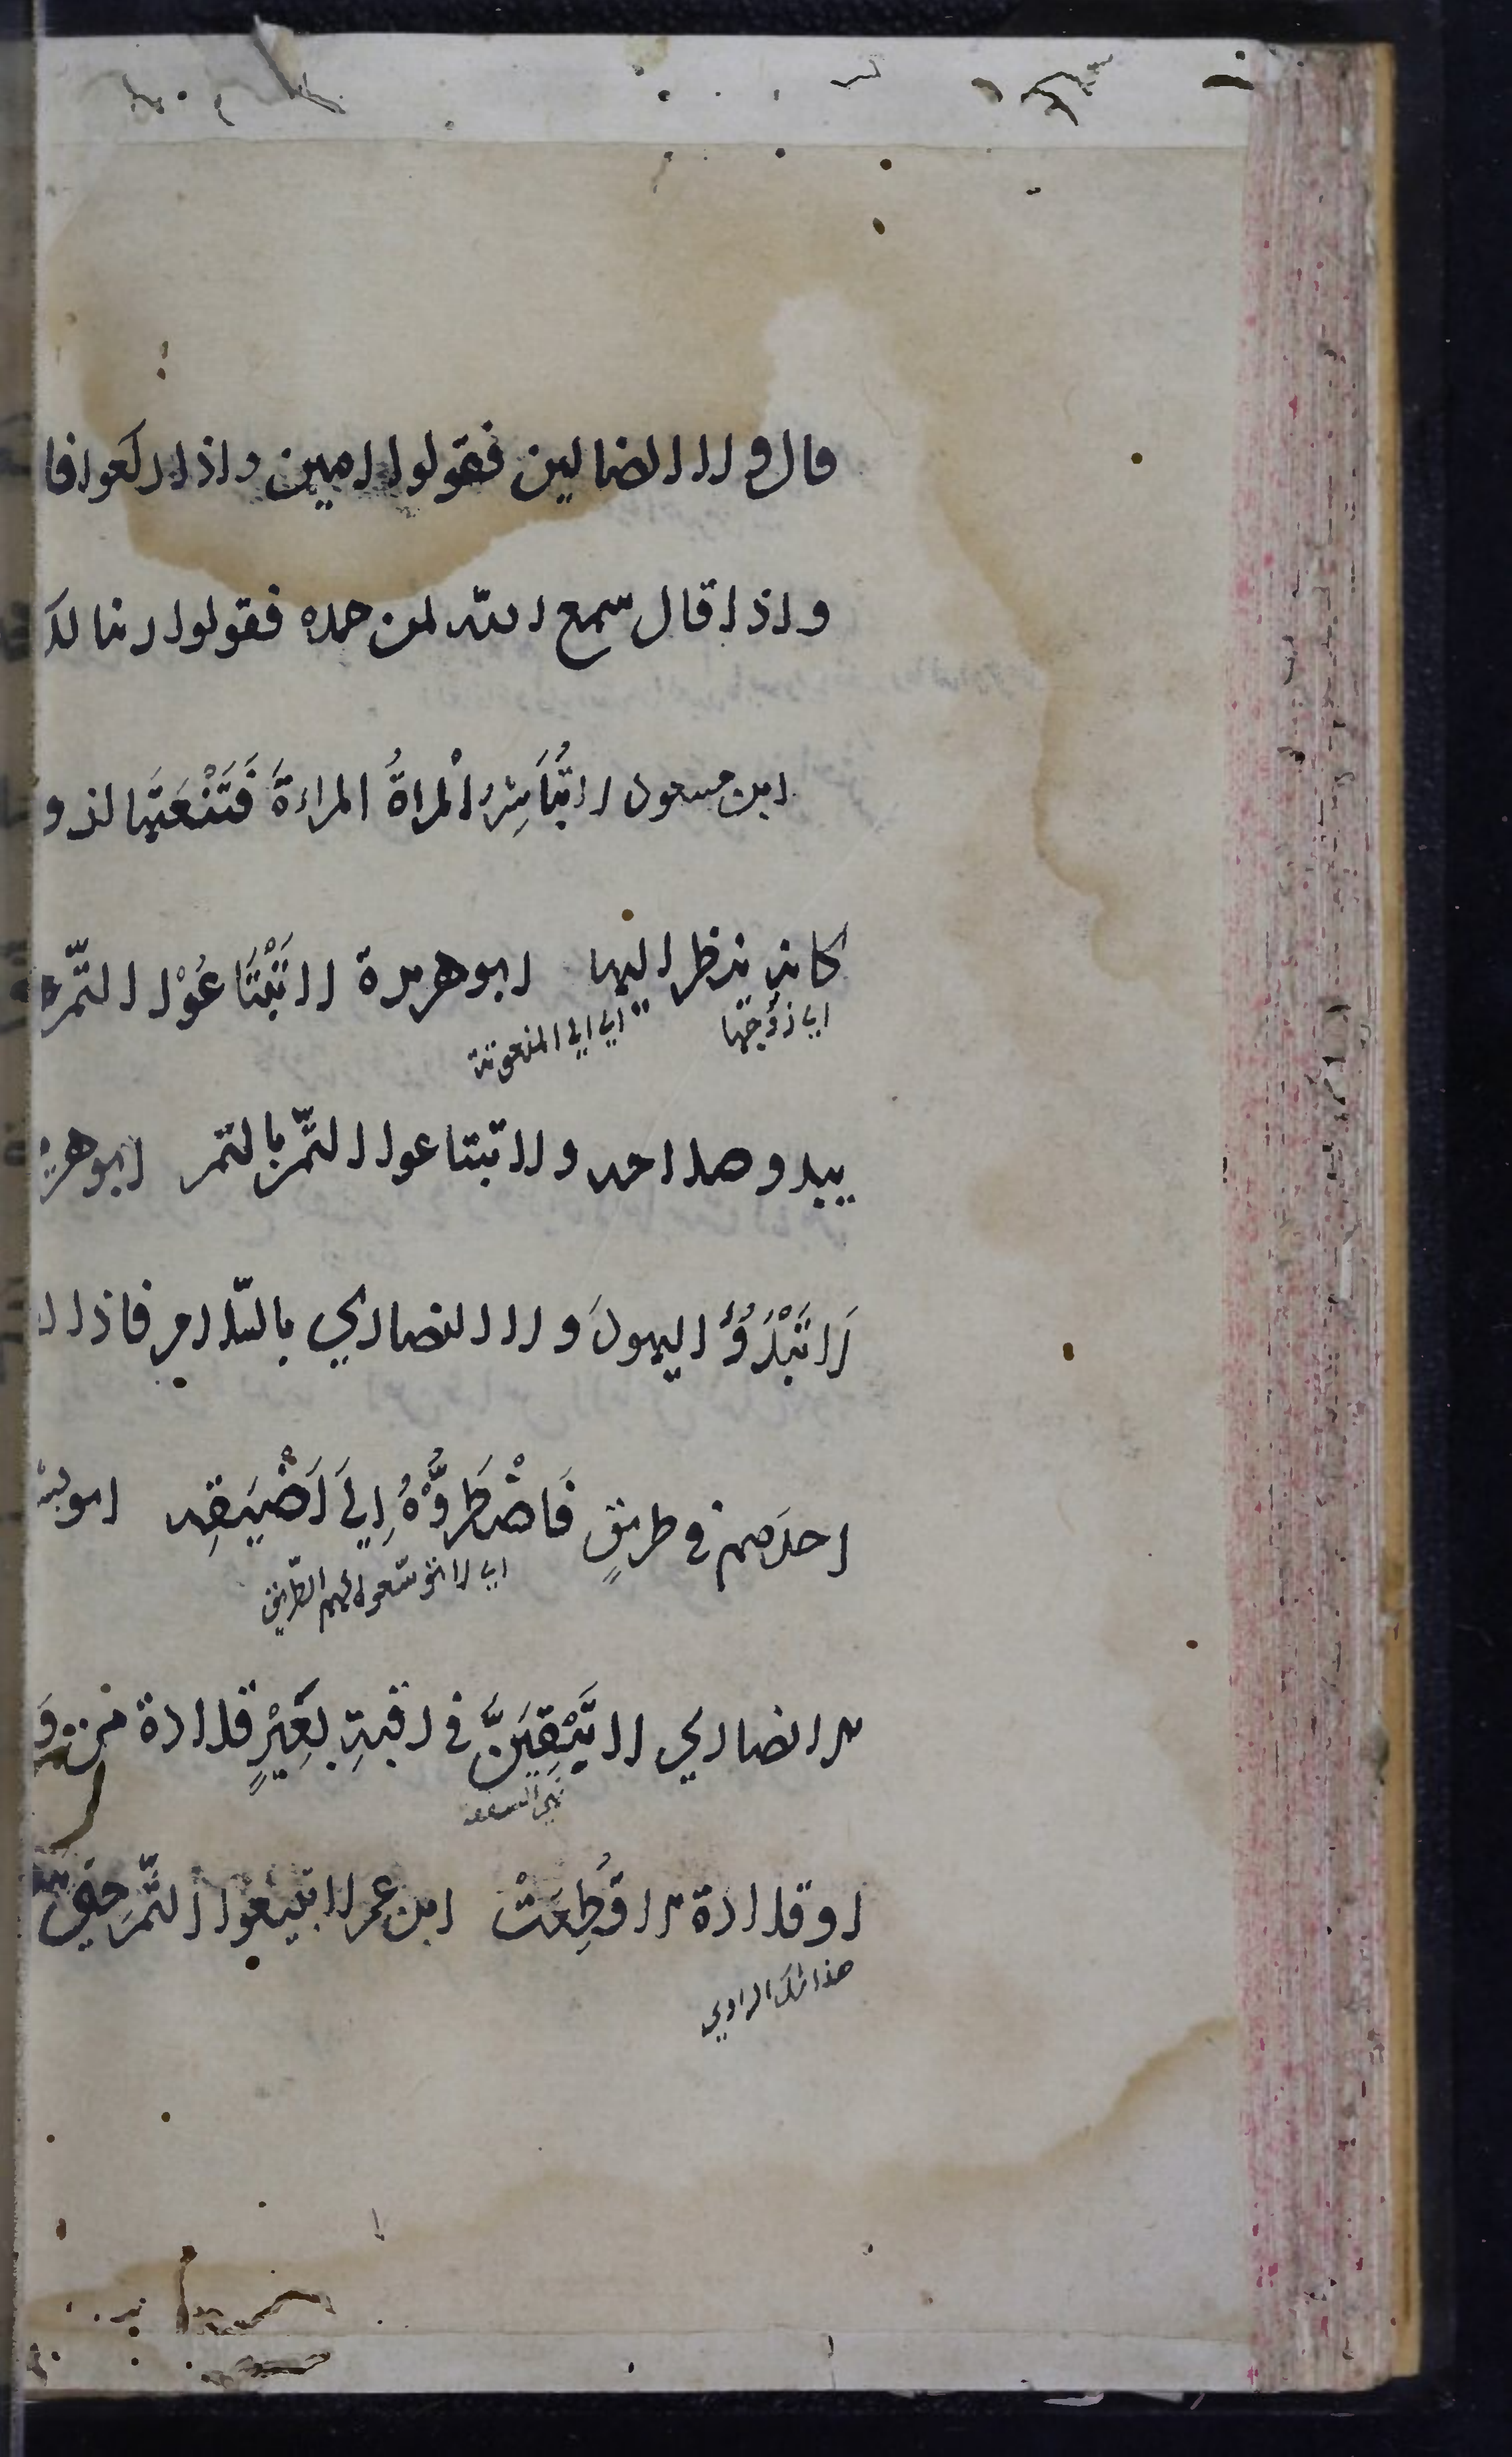 قال ولا الضالين فقولوا امين واذا ركعوا فا
واذا قال سمع الله لمن حمده فقولوا ربنا لك
ابن مسعود لا تُبَاشِرُ الْمراةُ المراءةَ فَتَنْعَتَها لذو
كانه ينظر اليها ابو هريرة لا تَبْتَاعُوْا التّمرة
اي زوجها
اي الي المنعوتة
يبدو صلاحه ولا تبتاعوا التّمر بالتمر ابو هر
لَا تَبْدَؤُ اليهودَ ولا النصاري بالسّلام فاذا ل
احدَهم في طريقٍ فَاضْطَرُّوْهُ اِلَي اَضْيَقِه ابو بش
اي لا توسعوا لهم الطّريق
ير انصاري لا تَبْقَيَنَّ في رقبةِ بَعِيْرٍ قلادة من و
او قلادة الا قُطِعَتْ ابن عمر لا تبيعوا التّمر حتي
هذا شك الراوي